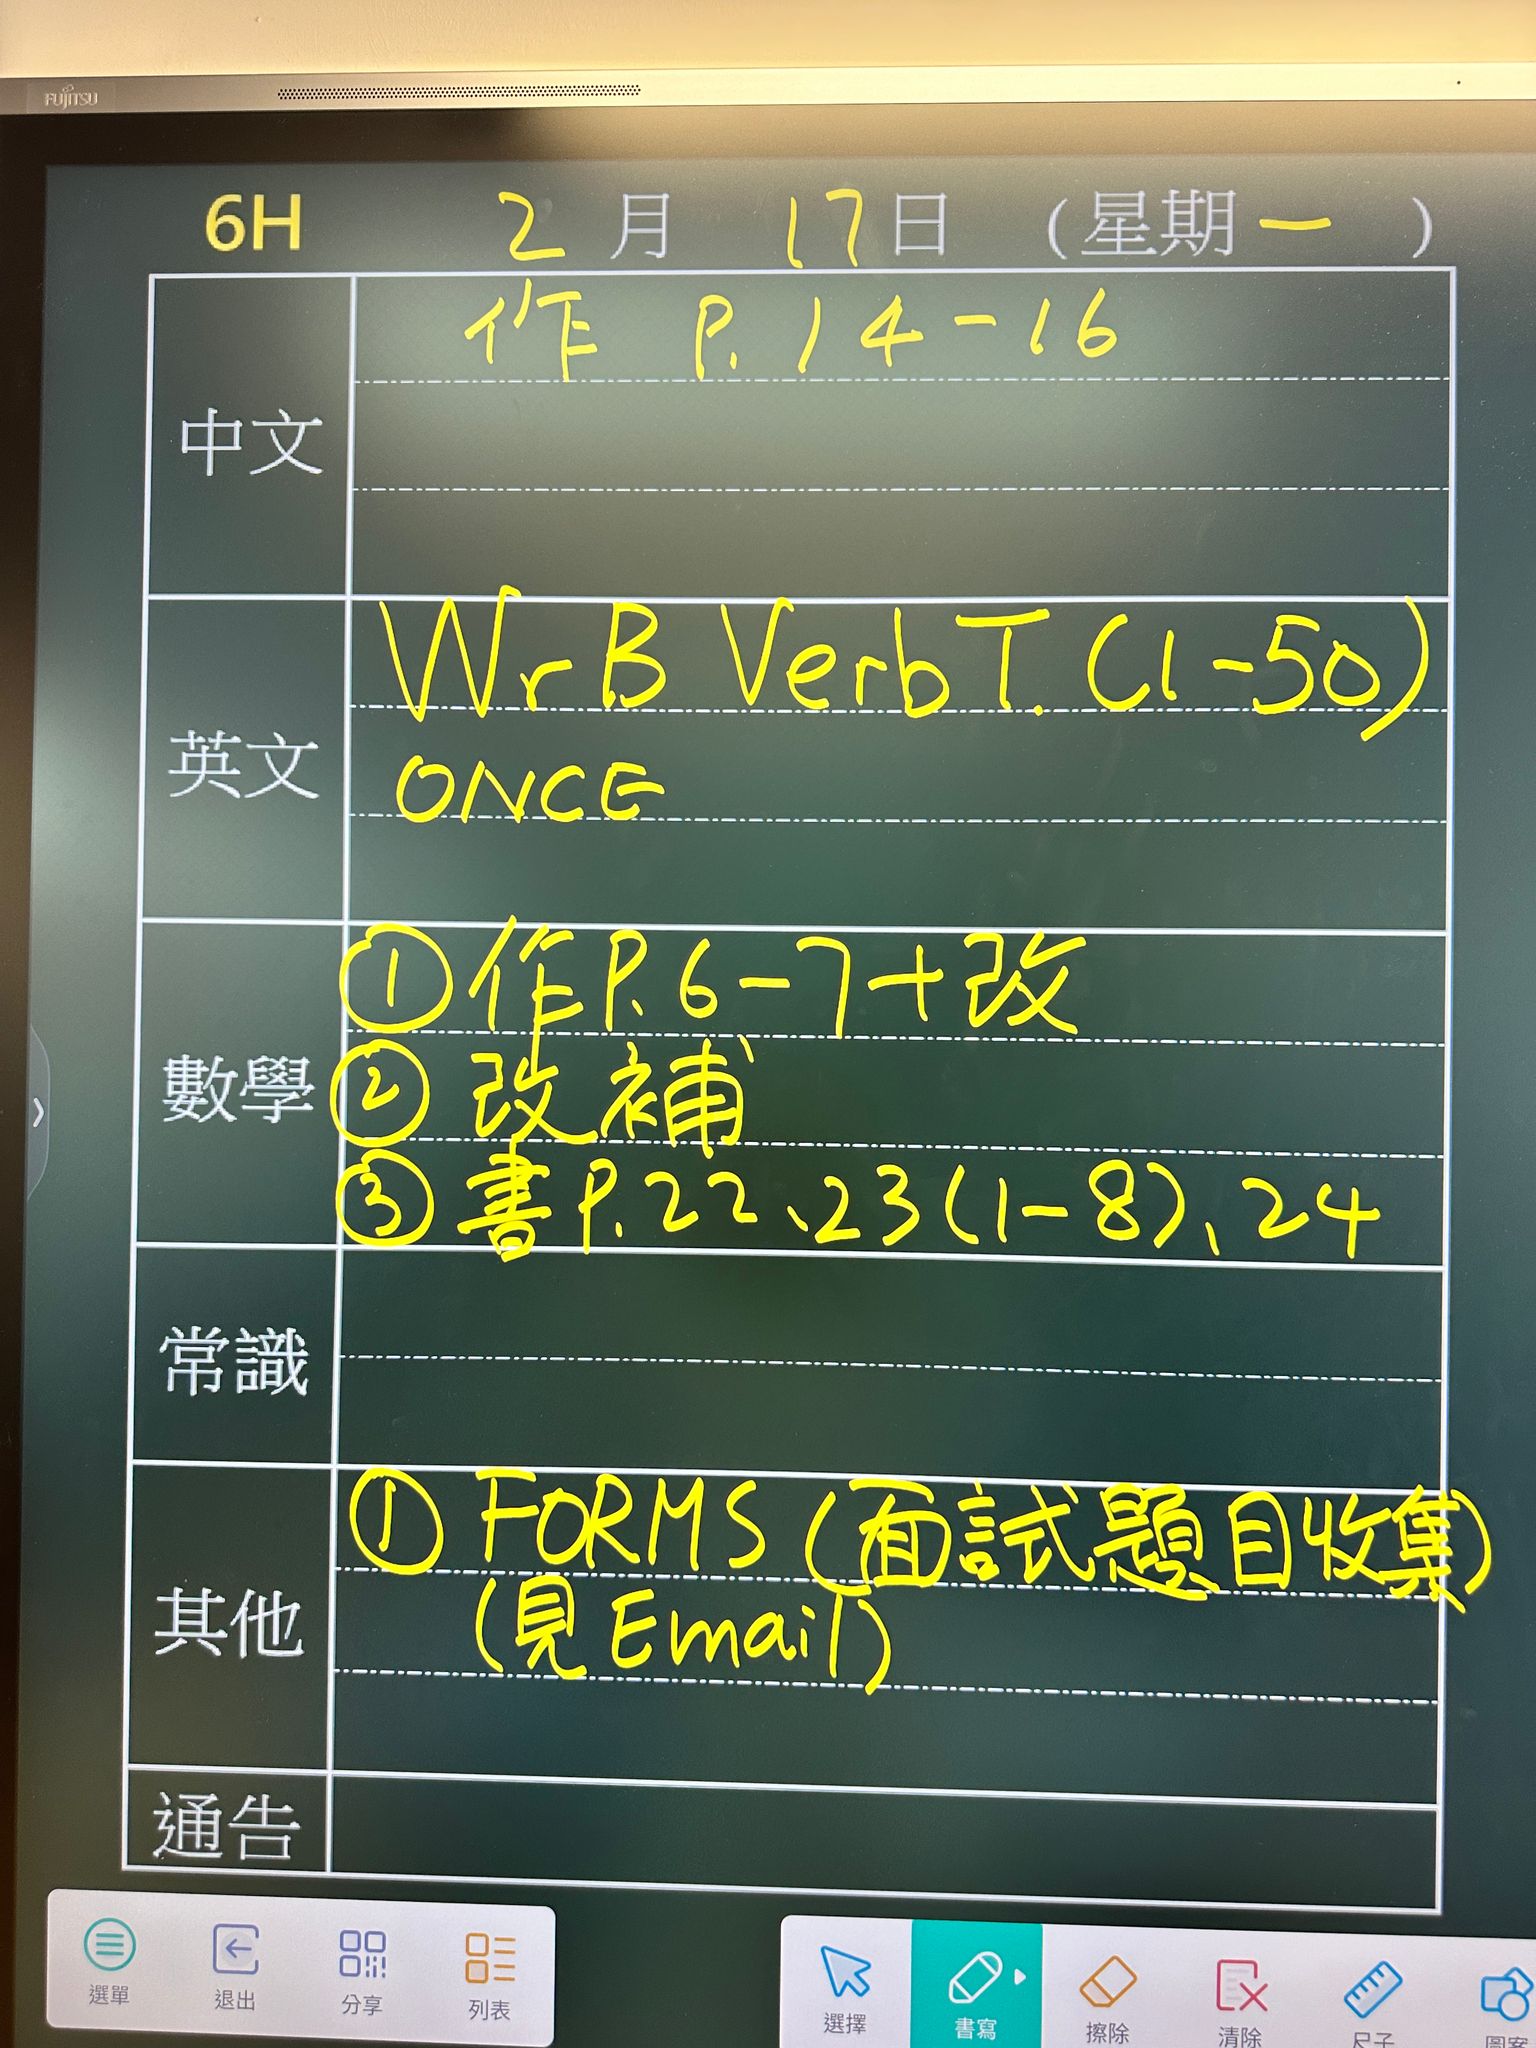 FUJITSU
6H 2月17日(星期一)
中文
作 P.14-16
英文
WrB Verb T. (1-50)
ONCE
數學
①作P.6-7+改
②改補
③書P.22、23(1-8)、24
常識
其他
①FORMS(面試題目收集)
(見Email)
通告
選單 退出 分享 列表
選擇 書寫 擦除 清除 尺子 圖案